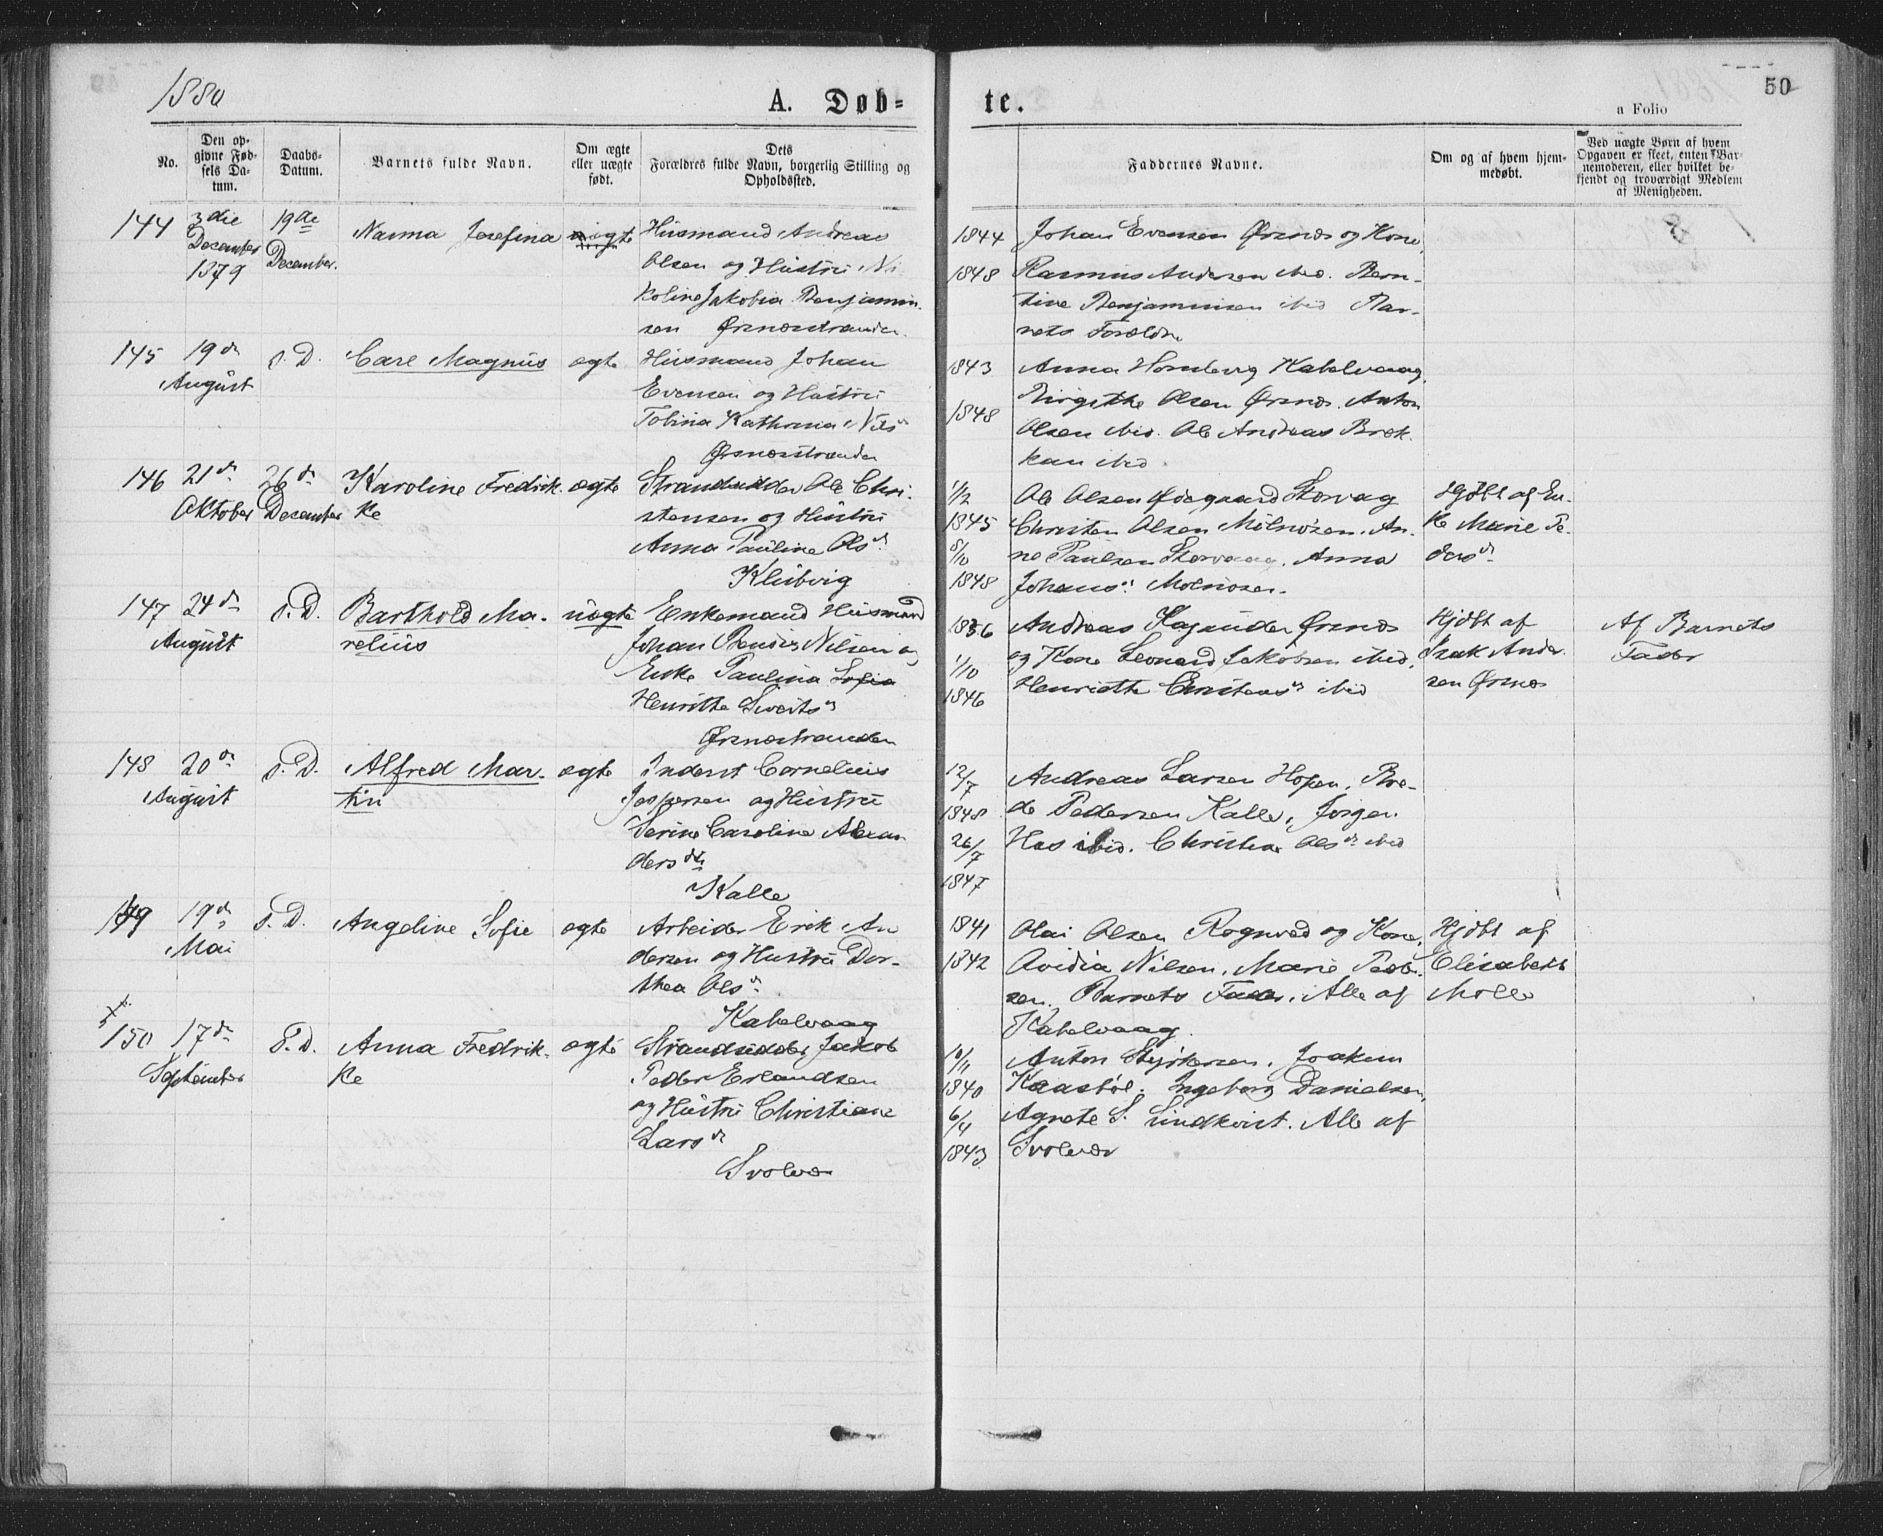 1880
A. Døb=
te.
50
a Folio
No.
Den op-
givne Fød-
sels Da-
tum.
Daabs-
Datum.
Barnets fulde Navn.
Om ægte
eller uægte
født.
Dets
Forældres fulde Navn, borgerlig Stilling og
Opholdssted.
Faddernes Navne.
Om og af hvem hjem-
medøbt.
Ved uægte Børn af hvem
Opgaven er skeet, enten Bar-
nemoderen, eller hvilket be-
kjendt og troværdigt Medlem
af Menigheden.
144
3die
December
1879
19de
December.
Nanna Josefina
ægte
Husmand Andreas
Olsen og Hustru Ni
koline Jakobia Benjamin-
sen Ørsnæsstranden.
1844
1848
Johan Evensen Ørsnæs og Kone,
Rasmus Andersen ibid. Bern-
tine Benjaminsen ibid Bar-
nets Forældre
145
19de
August
s. D.
Care Magnus
ægte
Husmand Johan
Evensen og Hustru
Tobina Kathrina Nilsdr
Ørsnæsstranden
1843
1848
Anna Hornberg Kabelvaag.
Birgithe Olsen Ørsnæs. Anton
Olsen ibid. Ole Andreas Brek-
kan ibid
146
21de
Oktober
26de
December
Karoline Fredrik-
ke
ægte
Strandsidder Ole Chri-
stensen og Hustru
Anna Pauline Olsdr.
Klubvig
1/12
1845
8/10
1848
Ole Olsen Ødegaard Storvag
Christen Olsen Molnosen. An-
ne Paulsen Storvaag. Anna
Johansdr Molnosen.
Hjdbt af En-
ke Marie Pe-
dersdr
147
24de
August
s. D.
Barthold Ma-
relius
uægte
Enkemand Husmand
Johan Nilsen og
Enke Paulina Sofia
Henritte Sivertsdr
Ørsnæsstranden
1836
1/10
1846
Andreas Ørsnæs
og Kone Leonard Jakobsen ibid.
Henriette ibid
Hjdbt af
Isak Ander-
sen Ørsnæs
Af Barnets
Fader
148
20de
August
s. D.
Alfred Mar-
tin
ægte
Inderst Cornelius
Jespersen og Hustru
Serine Caroline Alexan-
dersdtr
Kalle
12/7
1848
26/7
1847
Andreas Larsen Hopen. Pre-
de Pedersen Kalle, Jørgen
Hos ibid. Christine Olsdr ibid
149
19de
Mai
s. D.
Angeline Sofie
ægte
Arbeider Erik An
dersen og Hustru Dor-
thea Olsdr.
Kabelvaag
1841
1842
Olai Olsen Rognvad og Kone,
Ovidia Nilsen. Marie Peder-
sen. Barnets Fader. Alle af
Kabelvaag.
Hjdbt af
Elisabeth
Molle
150
17de
September
s. D.
Anna Fredrik-
ke
ægte
Strandsidder Jakob
Peder Erlandsen
og Hustru Christiane
Larsdr
Svolvær
10/11
1840
6/4
1843
Anton Styrkersen. Joakim
Kaasbøl. Ingeborg Danielsen,
Agnete S. Lindkvist. Alle af
Svolvær